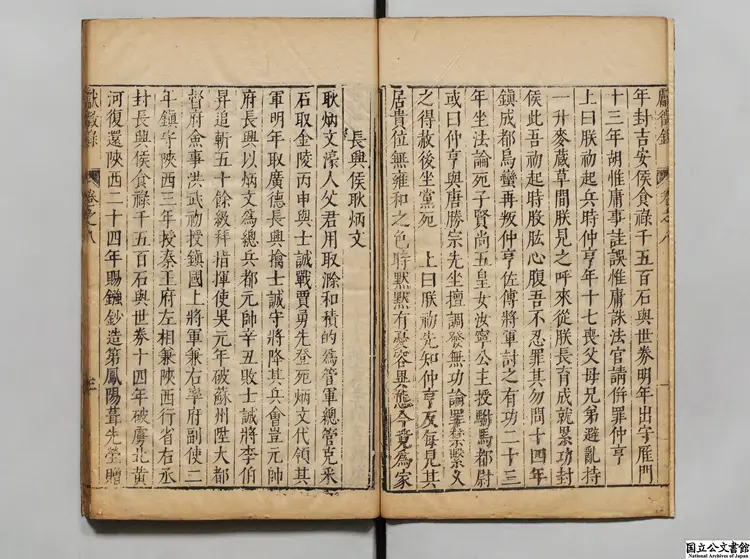 年封吉安侯食祿千五百石與世券明年出守雁門
十三年胡惟庸事詿誤惟庸誅法官請併罪仲亨
上曰朕初起兵時仲亨年十七喪父母兄弟避亂持
一升麥蔵草間朕見之呼來從朕長育成就累功封
侯此吾初起時股肱心腹吾不忍罪其勿問十四年
鎮成都烏蠻再叛仲亨佐傅將軍討之有功二十三
年坐法論死子賢尚五皇女汝寧公主授駙馬都尉
或曰仲亨與唐勝宗先坐擅調發無功論罪禁繫久
之得赦後坐黨死 上曰朕初先知仲亨反每見其
居貴位無雍和之色時黙黙有憂容異態今竟爲家
長興侯耿炳文
耿炳文濠人父君用取滁和積的爲管軍總管克采
石取金陵丙申與士誠戰賈勇先登死炳文代領其
軍明年取廣德長興擒士誠守將降其兵會豈元帥
府長興以炳文爲總兵都元帥辛丑敗士誠將李伯
昇追斬五十餘級拜指揮使吳元年破蘇州陞大都
督府僉事洪武初授鎮國上將軍兼右率府副使二
年鎮守陝西三年授秦王府左相兼陝西行省右丞
封長興侯食祿千五百石與世券十四年破虜北黃
河復還陝西二十四年賜鏹鈔造第鳳陽葺先塋贈
獻徵錄 卷之八
國立公文書館
National Archives of Japan